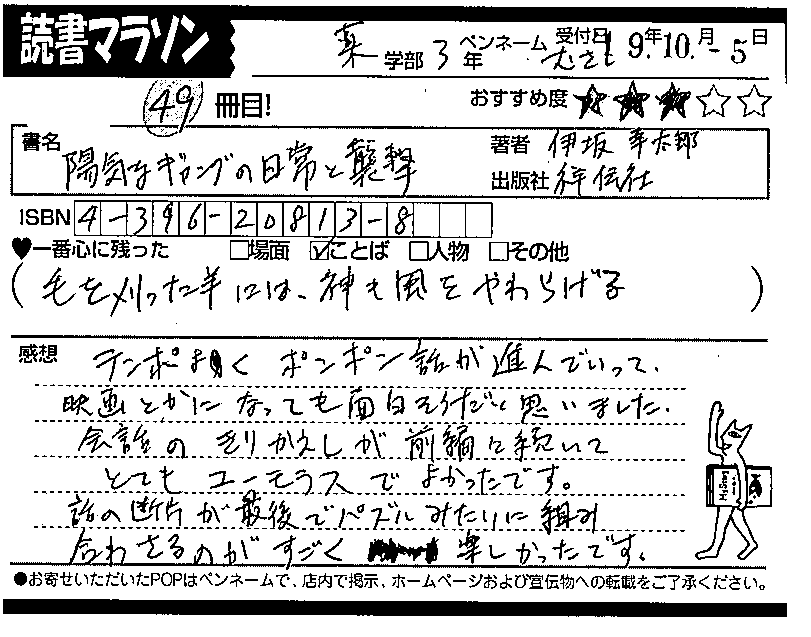 読書マラソン
薬学部 3年 ペンネーム むさし 受付日 19年10月-5日
49冊目! おすすめ度 ★★★☆☆
書名 陽気なギャングの日常と襲撃
著者 伊坂 幸太郎
出版社 祥伝社
ISBN 4-396-20813-8
♥一番心に残った □場面 ☑ことば □人物 □その他
(毛を刈った羊には、神も風をやわらげる)
感想 テンポよく ポンポン話が進んでいって、
映画とかになっても面白そうだと思いました.
会話の きりかえしが 前編に続いて
とても ユーモラスで よかったです。
話の断片が最後でパズルみたいに組み
合わさるのが すごく 楽しかったです.
●お寄せいただいたPOPはペンネームで、店内で掲示、ホームページおよび宣伝物への転載をご了承ください。